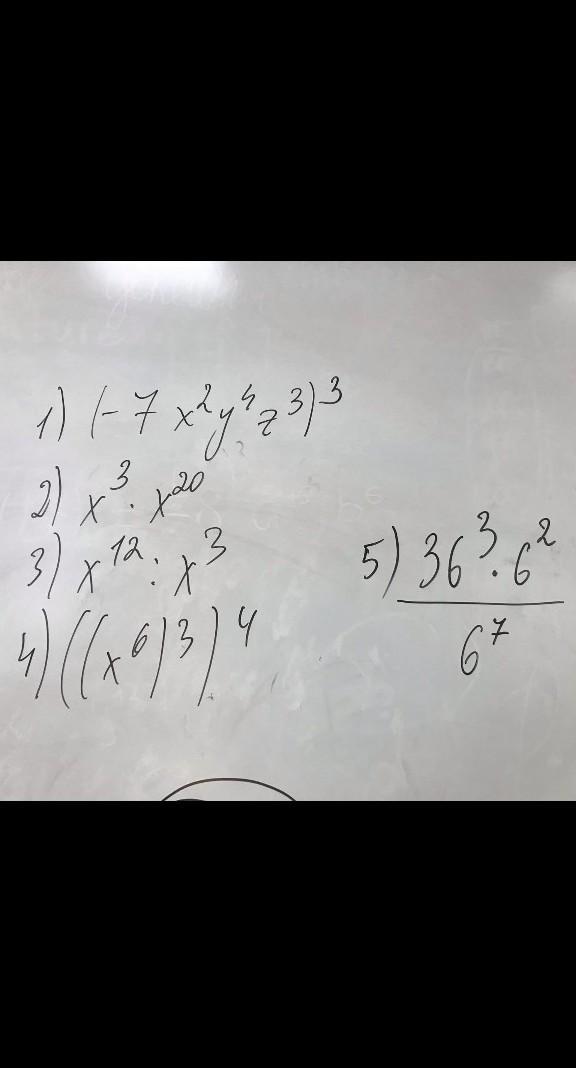 1) (-7x²y⁴z³)³
2) x³ · x²⁰
3) x¹² : x³
4) ((x⁶)³)⁴
5) 36³ · 6²
6⁷